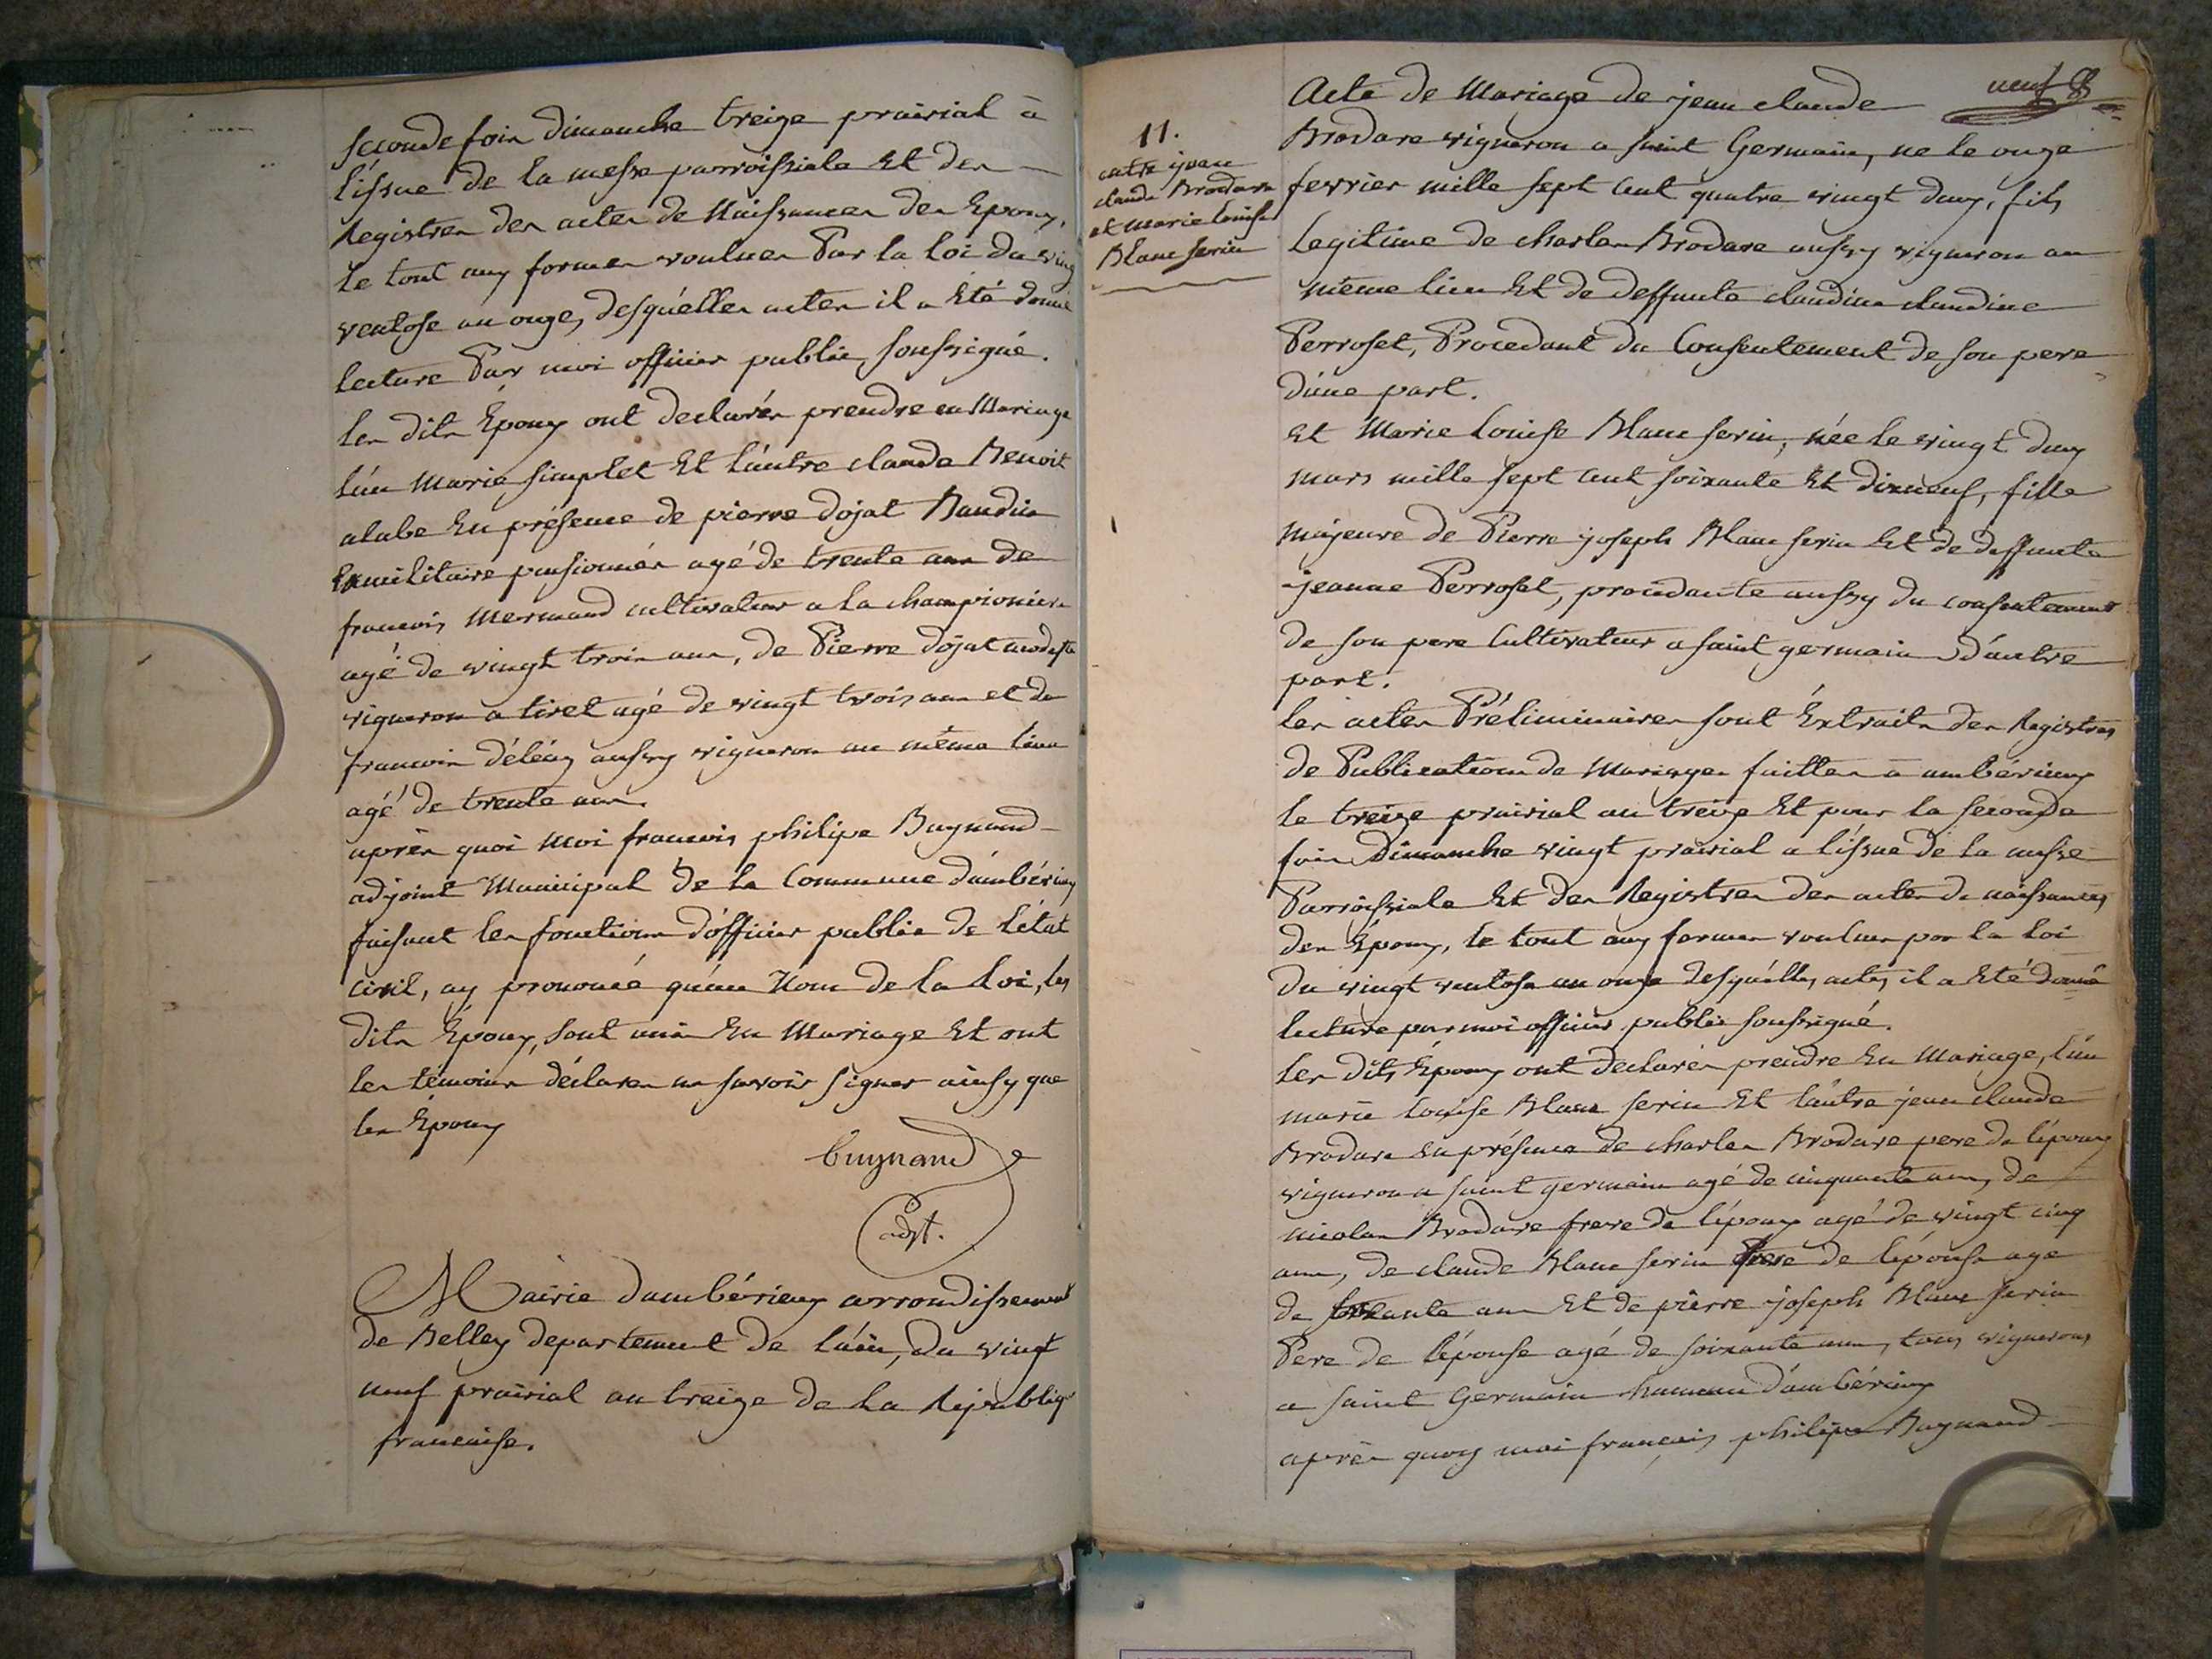 seconde fois dimanche treize prairial à
l'issue de la messe parroissiale Et des
Registres des actes de Naissances des Epoux,
le tout aux formes voulues Par la loi du vingt
ventose an onze, desquélles actes il a Eté donné
lecture Par moi officier public soussigné.
les dits Époux ont declarés prendre en Mariage
l'ún Marie simplet Et l'áutre claude Benoit
alabe En présence de pierre dojat Baudin
Exmilitaire pensionnés agé de trente ans de
francois Mermand cultivateur a la championiere
agé de vingt trois ans, de Pierre dojat modeste
vigneron a tiret agé de vingt trois ans et de
francois déléaz aussy vigneron au même lieu
agé de trente ans.
après quoi Moi francois philipe Buynand
adjoint Municipal de la Commune d'ambérieux
faisant les fonctions d'officier public de l'état
civil, ay prononcé qu'au Nom de la Loi, les
dits Époux, sont unis En Mariage Et ont
les témoins déclarés ne savoir signer ainsy que
les Époux
buynand
adjt.
Mairie d'ambérieux arrondissement
de Belley departement de l'áin, du vingt
neuf prairial an treize de la Republiq'
francaise.
neuf
11.
entre jean
claude Brodare
et marie louise
Blanc serin
Acte de Mariage de jean claude
Brodare vigneron a saint Germain, ne le onze
fevrier mille sept cent quatre vingt deux, fils
Legitime de charles Brodare aussy vigneron au
même lieu Et de deffunte claudine claudine
Perroset, Procedant du Consentement de son pere
d'úne part.
Et Marie Louise Blanc serin, née le vingt deux
mars mille sept cent soixante Et dixneuf, fille
majeure de Pierre joseph Blanc serin Et de deffunte
jeanne Perroset, procédante aussy du consentement
de son pere Cultivateur a saint germain d'áutre
part.
les actes Préliminaires sont Extraits des Registres
de Publications de Mariages faittes à ambérieux
le treize prairial an treize Et pour la seconde
fois Dimanche vingt prairial a l'issue de la messe
Parroissiale Et des Registres des actes de naissances
des Époux, le tout aux formes voulues par la loi
du vingt ventose an onze desquélles actes il a Eté donné
lecture par moi officier public soussigné.
les dits Époux ont declarés prendre En Mariage, l'ún
marie louise Blanc serin Et l'áutre jean claude
Brodare En présence de charles Brodare pere de l'époux
vigneron a saint germain agé de cinquante ans, de
nicolas Brodare frere de l'époux agé de vingt cinq
ans, de claude Blanc serin frere de l'épouse age
de trente ans Et de pierre joseph Blanc serin
Pere de l'épouse agé de soixante ans, tous vignerons
a saint Germain hameau d'ambérieux
après quoy moi françois philipe Buynand